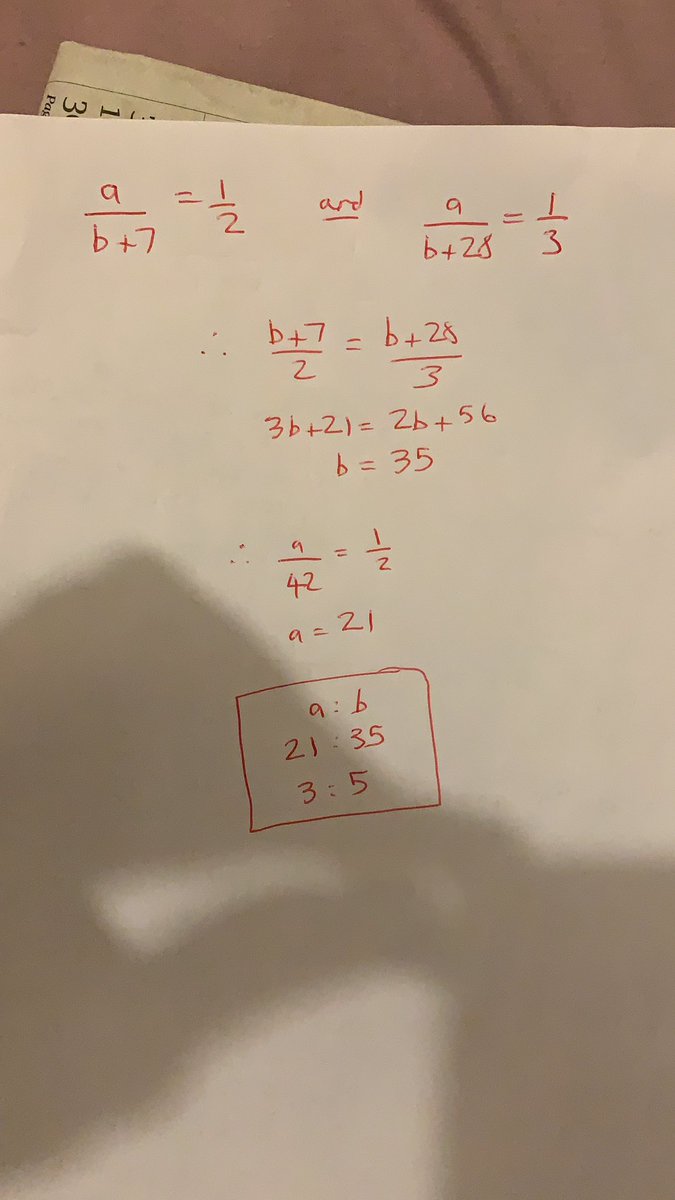 a/(b+7) = 1/2 and a/(b+28) = 1/3
∴ (b+7)/2 = (b+28)/3
3b+21 = 2b+56
b = 35
∴ a/42 = 1/2
a = 21
a : b
21 : 35
3 : 5